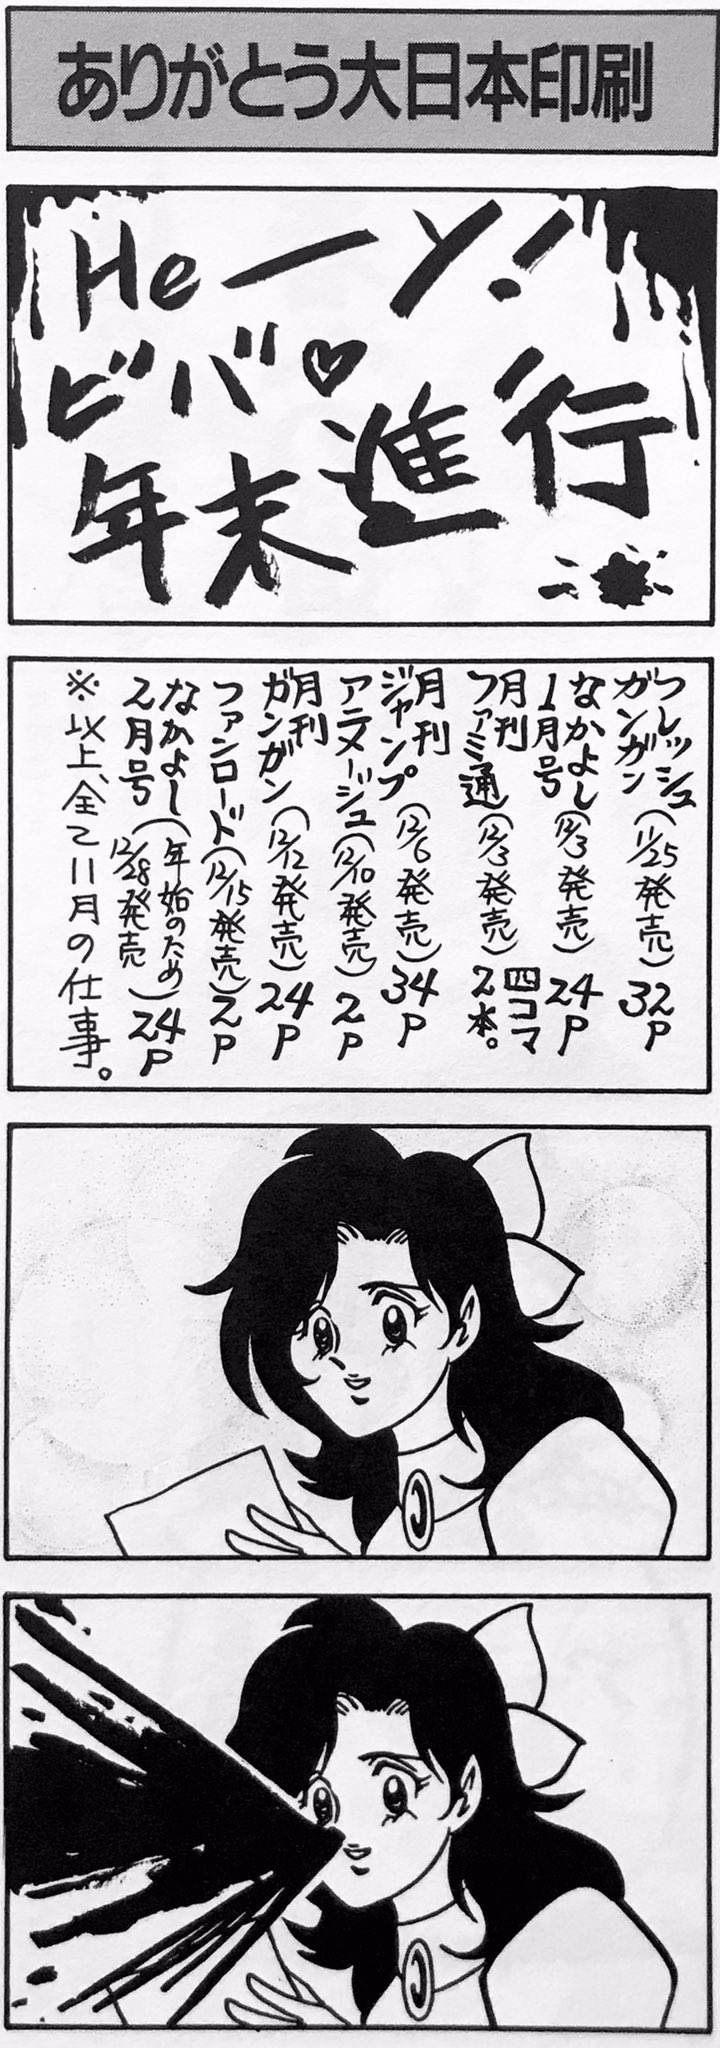 ありがとう大日本印刷
Heーイ!
ビバ♡
年末進行
フレッシュ
ガンガン(11/25発売)32P
なかよし
1月号(12/3発売)24P
月刊
ファミ通(12/3発売)四コマ2本。
月刊
ジャンプ(12/6発売)34P
アニメージュ(12/10発売)2P
月刊
ガンガン(12/12発売)24P
ファンロード(12/15発売)2P
なかよし
2月号(年始のため12/28発売)24P
※以上、全て11月の仕事。